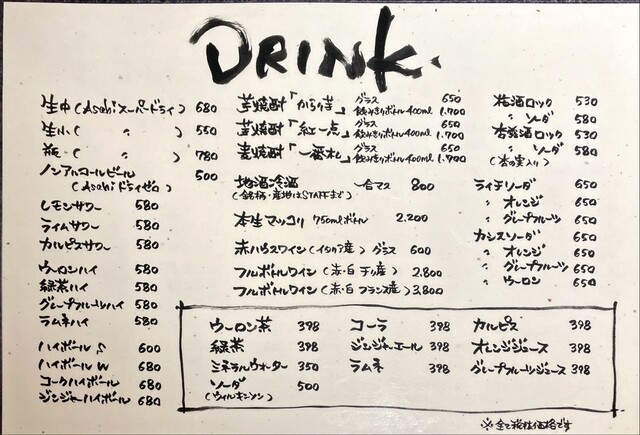 DRINK.
生中(Asahiスーパードライ) 680
生小( 〃 ) 550
瓶( 〃 ) 780
ノンアルコールビール 500
(Asahiドライゼロ)
レモンサワー 580
ライムサワー 580
カルピスサワー 580
ウーロンハイ 580
緑茶ハイ 580
グレープフルーツハイ 580
ラムネハイ 580
ハイボール S 600
ハイボール W 680
コークハイボール 680
ジンジャーハイボール 680
芋焼酎「からり芋」 グラス 650
飲みきりボトル400ml 1,700
芋焼酎「紅一点」 グラス 650
飲みきりボトル400ml 1,700
麦焼酎「一番札」 グラス 650
飲みきりボトル400ml 1,700
地酒冷酒 一合マス 800
(銘柄・産地はSTAFFまで)
本生マッコリ 750mlボトル 2,200
赤ハウスワイン(イタリア産) グラス 600
フルボトルワイン(赤・白 チリ産) 2,800
フルボトルワイン(赤・白 フランス産) 3,800
梅酒ロック 530
〃 ソーダ 580
杏酒ロック 530
〃 ソーダ 580
(杏の実入り)
ライチソーダ 650
〃 オレンジ 650
〃 グレープフルーツ 650
カシスソーダ 650
〃 オレンジ 650
〃 グレープフルーツ 650
〃 ウーロン 650
ウーロン茶 398
緑茶 398
ミネラルウォーター 350
ソーダ 500
(ウィルキンソン)
コーラ 398
ジンジャエール 398
ラムネ 398
カルピス 398
オレンジジュース 398
グレープフルーツジュース 398
※全て税抜価格です